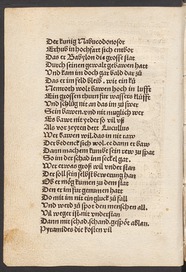 Der kunig Nabucodonosor
Erhub in hochfart sich embor
Das er Babylon die grosse stat
Durch seinen gewalt gebawen hatt
Und kam im doch gar bald dar zů
Das er im feld bleib, wie ein ků
Nemroth wolt bawen hoch in lufft
Ein grossen thurn für wassers klufft
Und schlůg nit an das im zů swer
Sein bawen wer, und nit mŭglich wer
Es bawt nit yeder so vil uß
Als vor zyten dett Lucullus
Wer bawen wil, das in nit ruw
Der bedenck sich wol, ee dann er buw
Dann manchem kumbt sein ruw zů spat
So im der schad inn seckel gat.
Wer etwas groß will understan
Der soll sein selbst bewerung han
Ob er möge kumen zů dem stat
Den er im für genumen hatt
Do mit im nit ein glück zů fall
Und werd zů spot den menschen all.
Vil weger ist nüt understan
Dann mit schad, schand, gespöt ablan.
Pyramides die kosten vil